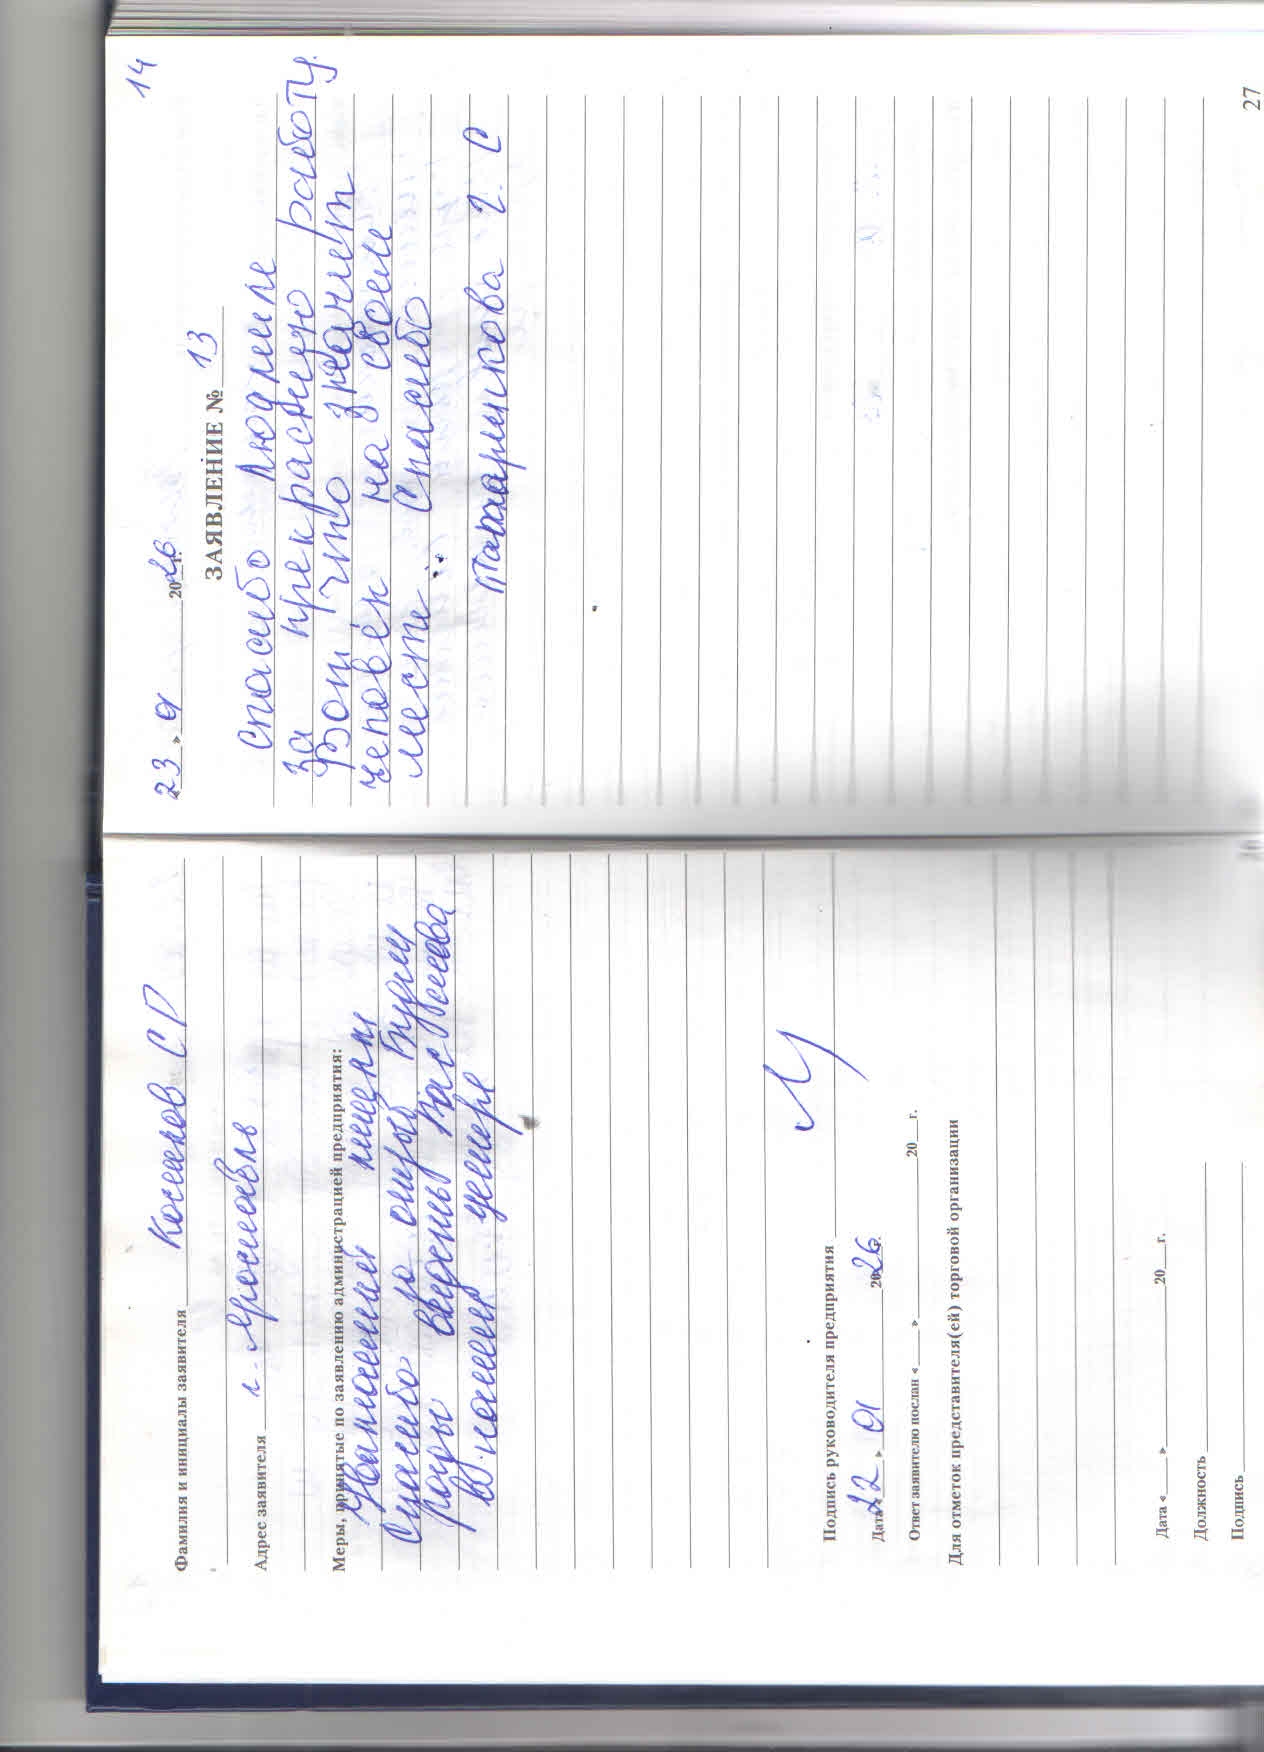 Фамилия и инициалы заявителя С Г
Адрес заявителя г. Ярославль
Меры, принятые по заявлению администрацией предприятия:
Уважаемый
Спасибо за отзыв Будем
рады видеть Вас снова
в нашем центре
Подпись руководителя предприятия
Дата «22» 01 2026г.
Ответ заявителю послан «___»___20__г.
Для отметок представителя(ей) торговой организации
Дата «___»___20__г.
Должность
Подпись
14
«23» 01 2026 г.
ЗАЯВЛЕНИЕ № 13
Спасибо Людмиле
за прекрасную работу.
Вот что значит
человек на своем
месте. Спасибо
Татаринкова Г. С
27